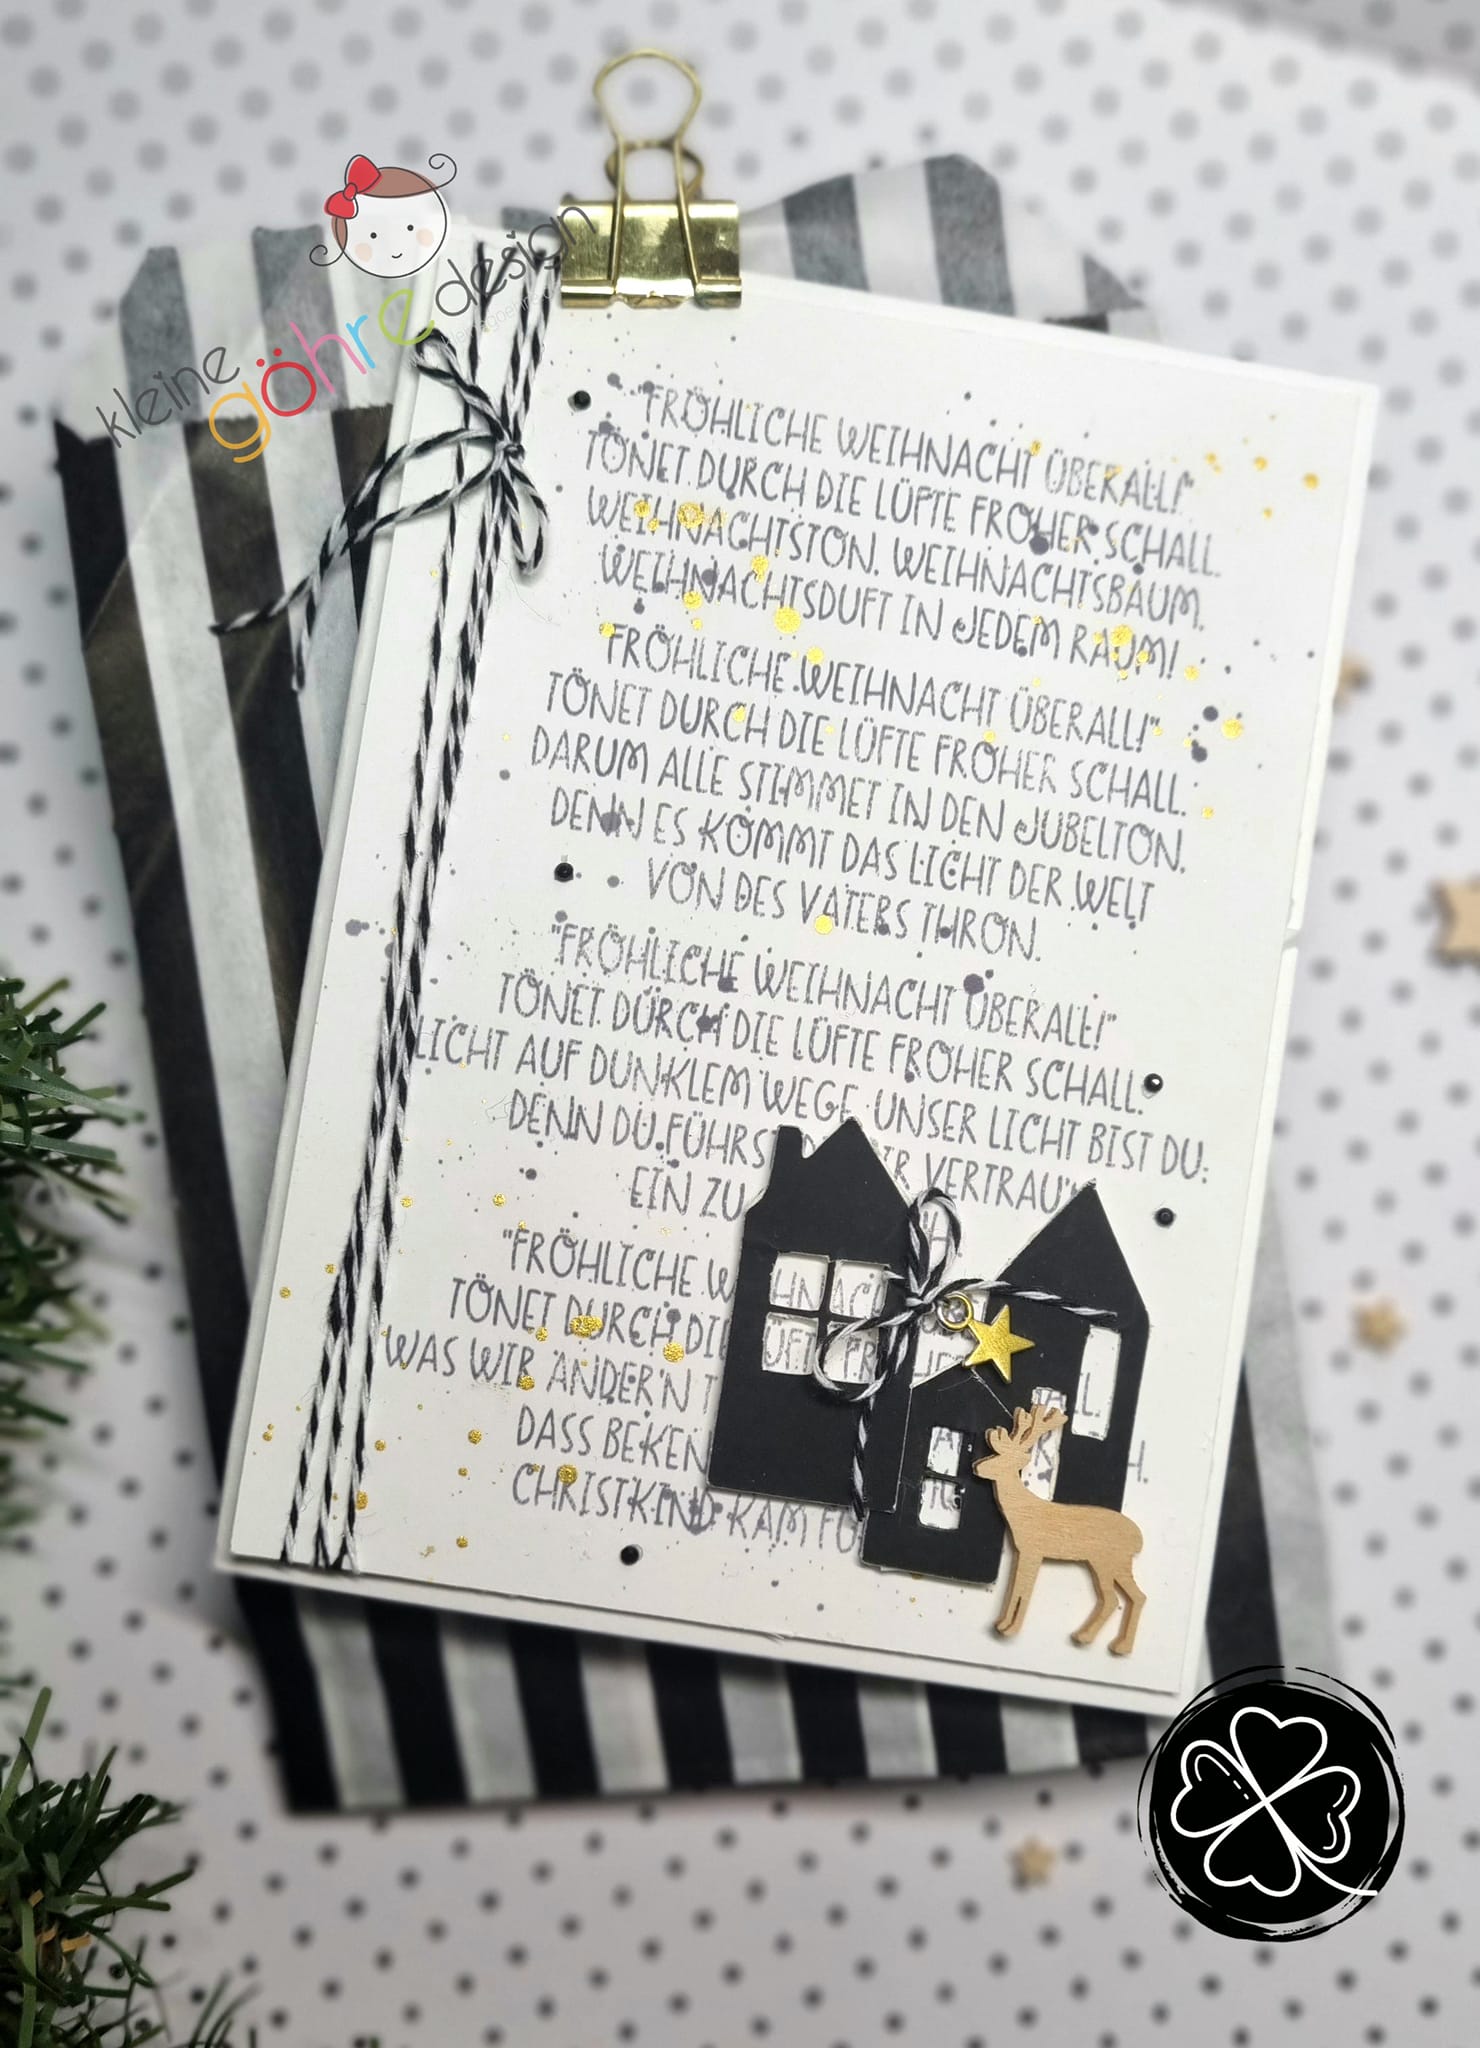 kleine
göhre design
"FRÖHLICHE WEIHNACHT ÜBERALL!"
TÖNET DURCH DIE LÜFTE FROHER SCHALL.
WEIHNACHTSTON, WEIHNACHTSBAUM,
WEIHNACHTSDUFT IN JEDEM RAUM!
"FRÖHLICHE WEIHNACHT ÜBERALL!"
TÖNET DURCH DIE LÜFTE FROHER SCHALL.
DARUM ALLE STIMMET IN DEN JUBELTON,
DENN ES KOMMT DAS LICHT DER WELT
VON DES VATERS THRON.
"FRÖHLICHE WEIHNACHT ÜBERALL!"
TÖNET DURCH DIE LÜFTE FROHER SCHALL.
LICHT AUF DUNKLEM WEGE, UNSER LICHT BIST DU;
DENN DU FÜHRST VERTRAU'N
EIN ZU
"FRÖHLICHE
TÖNET DURCH DIE
WAS WIR ANDER'N
DASS
CHRISTKIND KAM